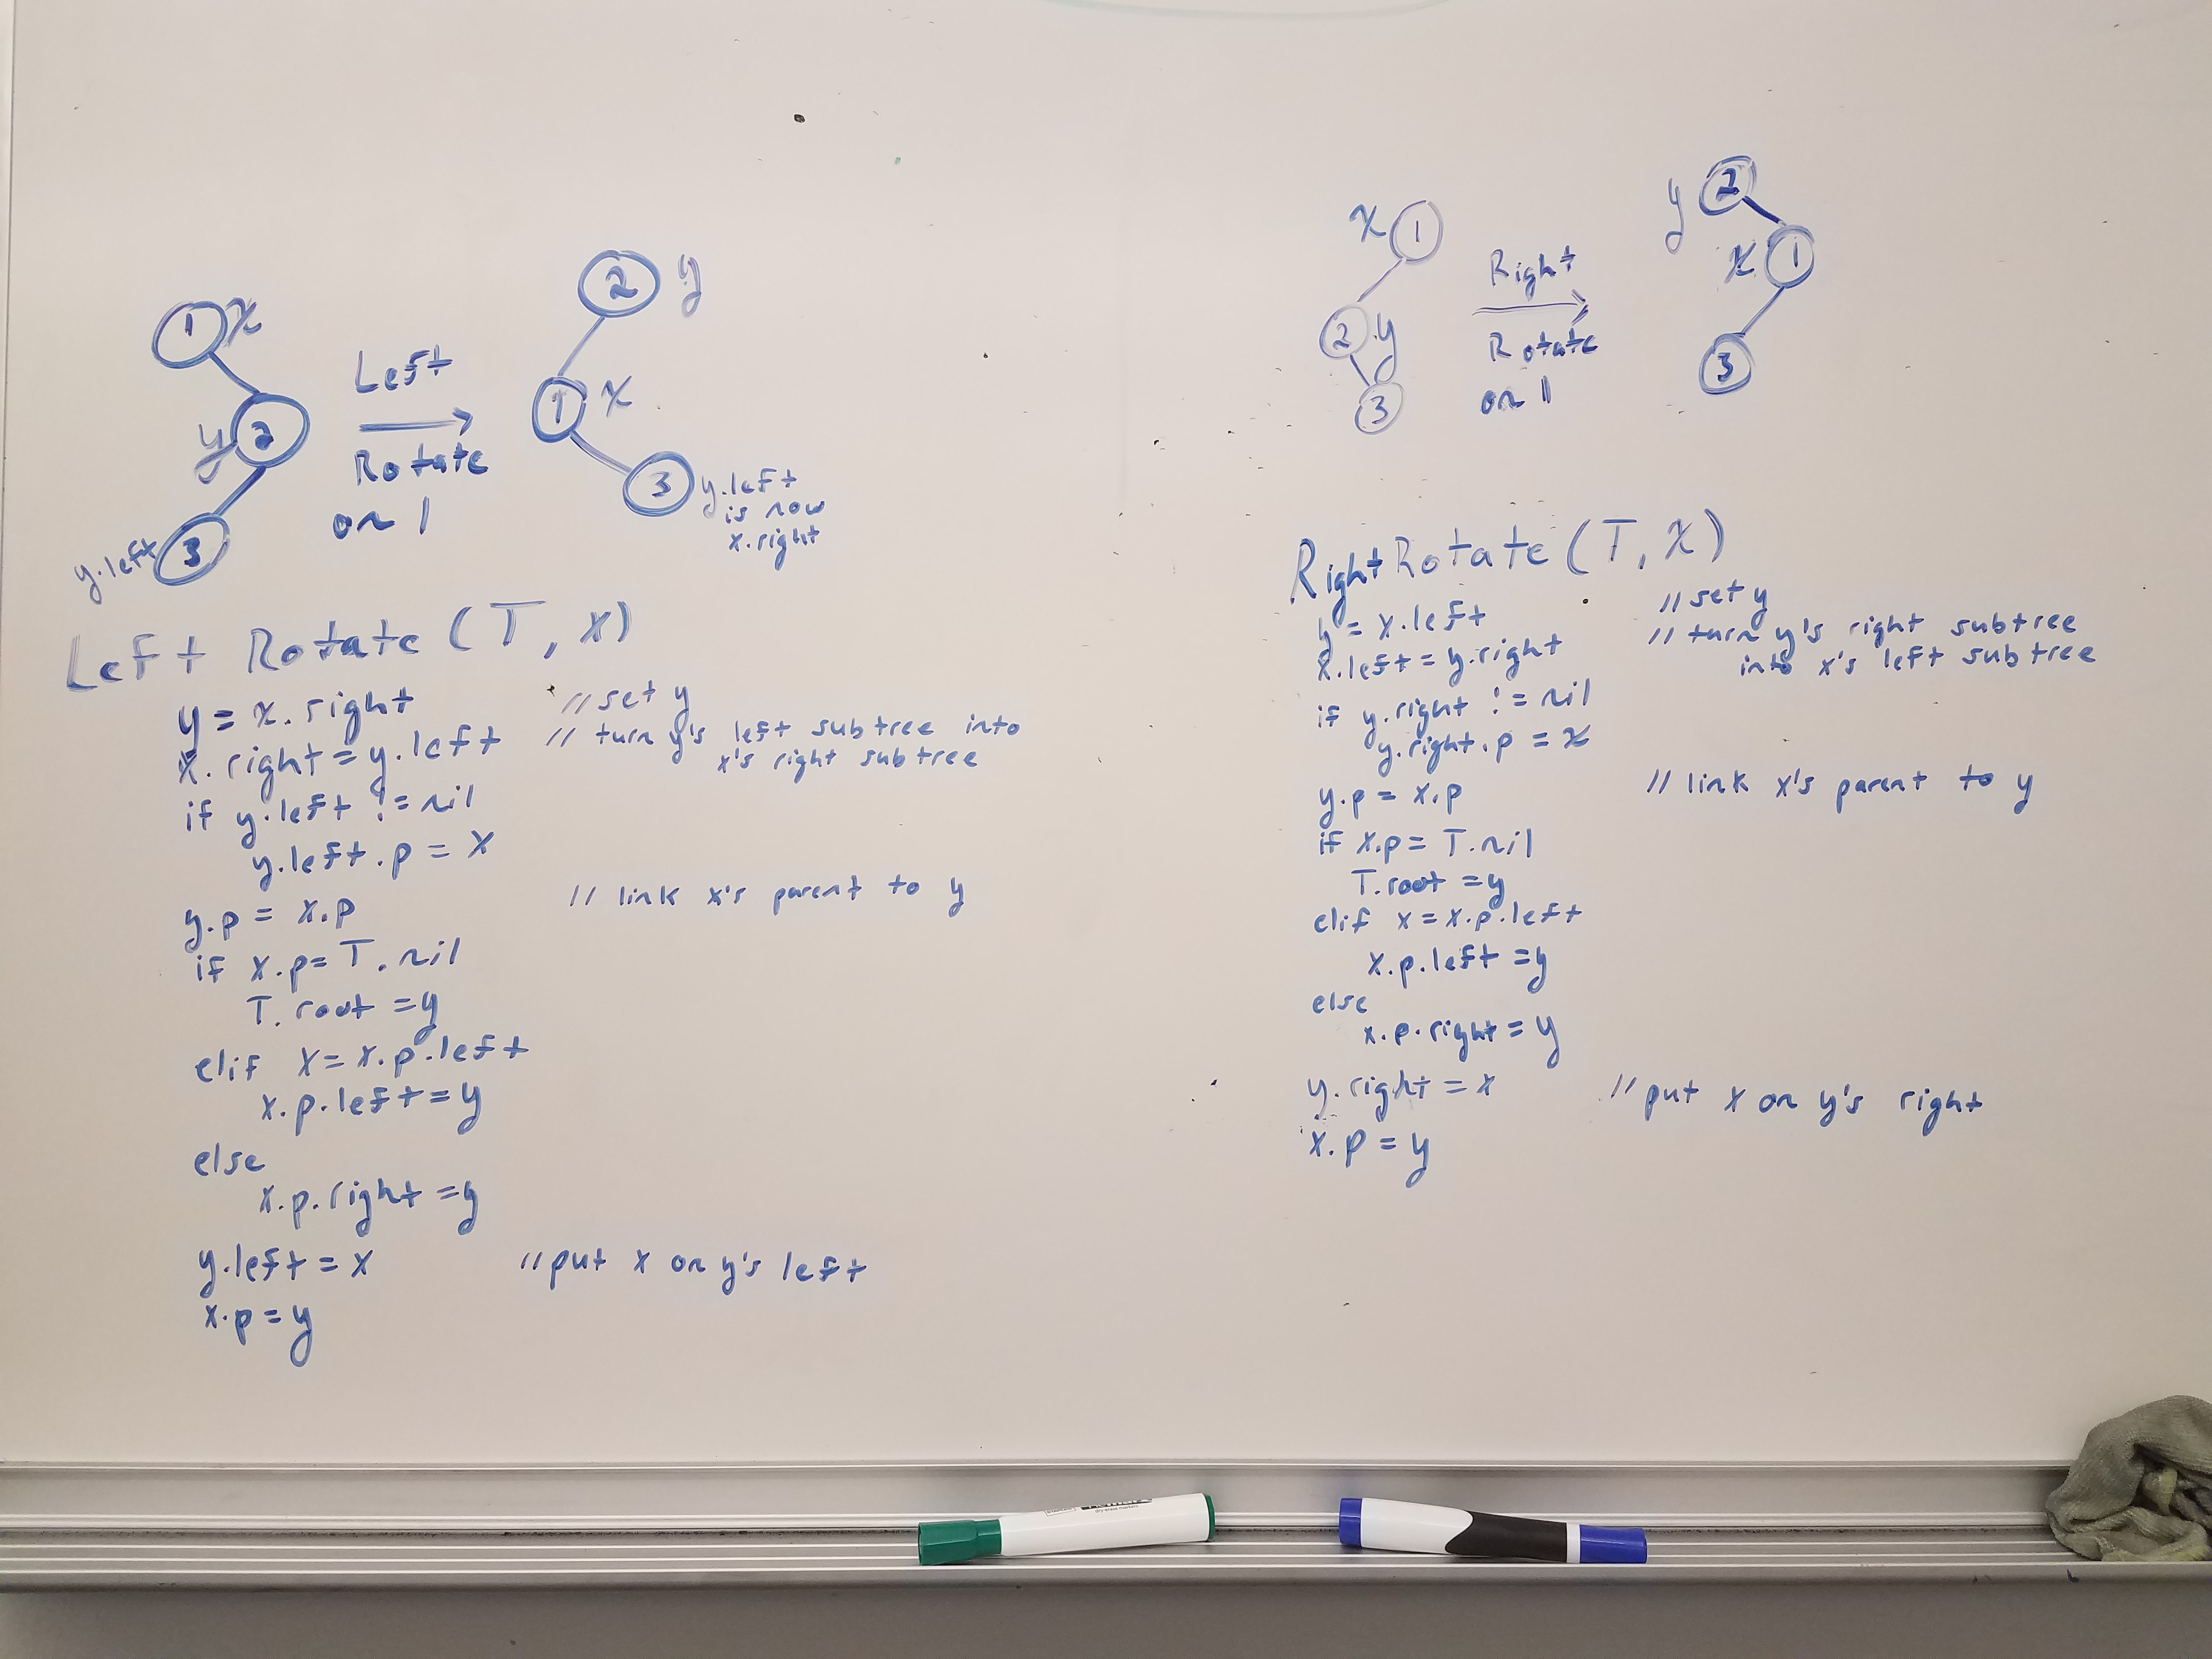 1 x
y 2
y.left 3
Left
Rotate
on 1
2 y
1 x
3 y.left
is now
x.right
Left Rotate (T, x)
y = x.right //set y
x.right = y.left // turn y's left subtree into
x's right subtree
if y.left != nil
y.left.p = x
y.p = x.p // link x's parent to y
if x.p = T.nil
T.root = y
elif x = x.p.left
x.p.left = y
else
x.p.right = y
y.left = x //put x on y's left
x.p = y
x 1
2 y
3
Right
Rotate
on 1
y 2
x 1
3
Right Rotate (T, x)
y = x.left //set y
x.left = y.right // turn y's right subtree
into x's left subtree
if y.right != nil
y.right.p = x
y.p = x.p // link x's parent to y
if x.p = T.nil
T.root = y
elif x = x.p.left
x.p.left = y
else
x.p.right = y
y.right = x //put x on y's right
x.p = y